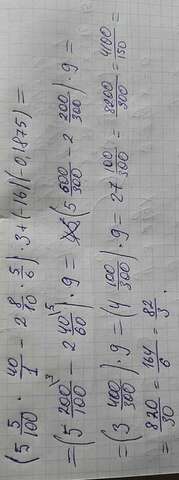 (5 5/100 · 40/1 - 2 8/10 · 5/6) · 3 + (-16)(-0,1875) =
= (5 200/100 - 2 40/60) · 9 = (5 600/300 - 2 200/300) · 9 =
= (3 400/300) · 9 = (4 100/300) · 9 = 27 100/300 = 8200/300 = 4100/150
= 820/30 = 164/6 = 82/3.